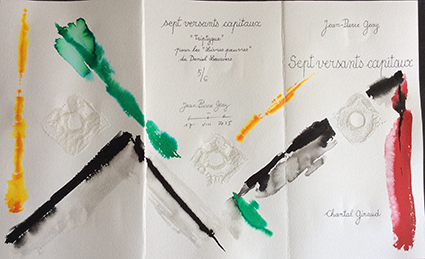 sept versants capitaux
"Triptyque"
pour les "livres pauvres"
de Daniel Leuwers
5/6
Jean-Pierre Geay
2015
Jean-Pierre Geay
Sept versants capitaux
Chantal Giraud